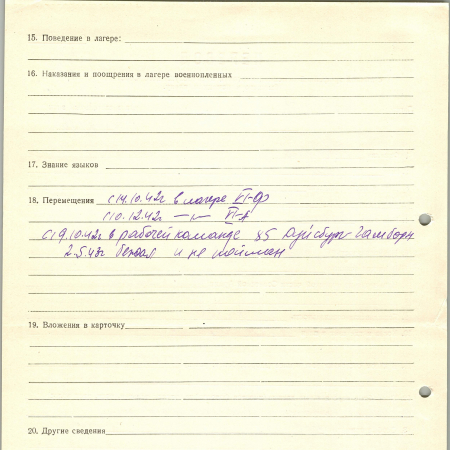 15. Поведение в лагере:
16. Наказания и поощрения в лагере военнопленных
17. Знание языков
18. Перемещения с 14.10.42г в лагере VI-Ф
с 10.12.42г —〃— VI-А
с 19.10.42г в рабочей команде 85 Дуйсбург Гамборн
2.5.43г бежал и не пойман
19. Вложения в карточку
20. Другие сведения